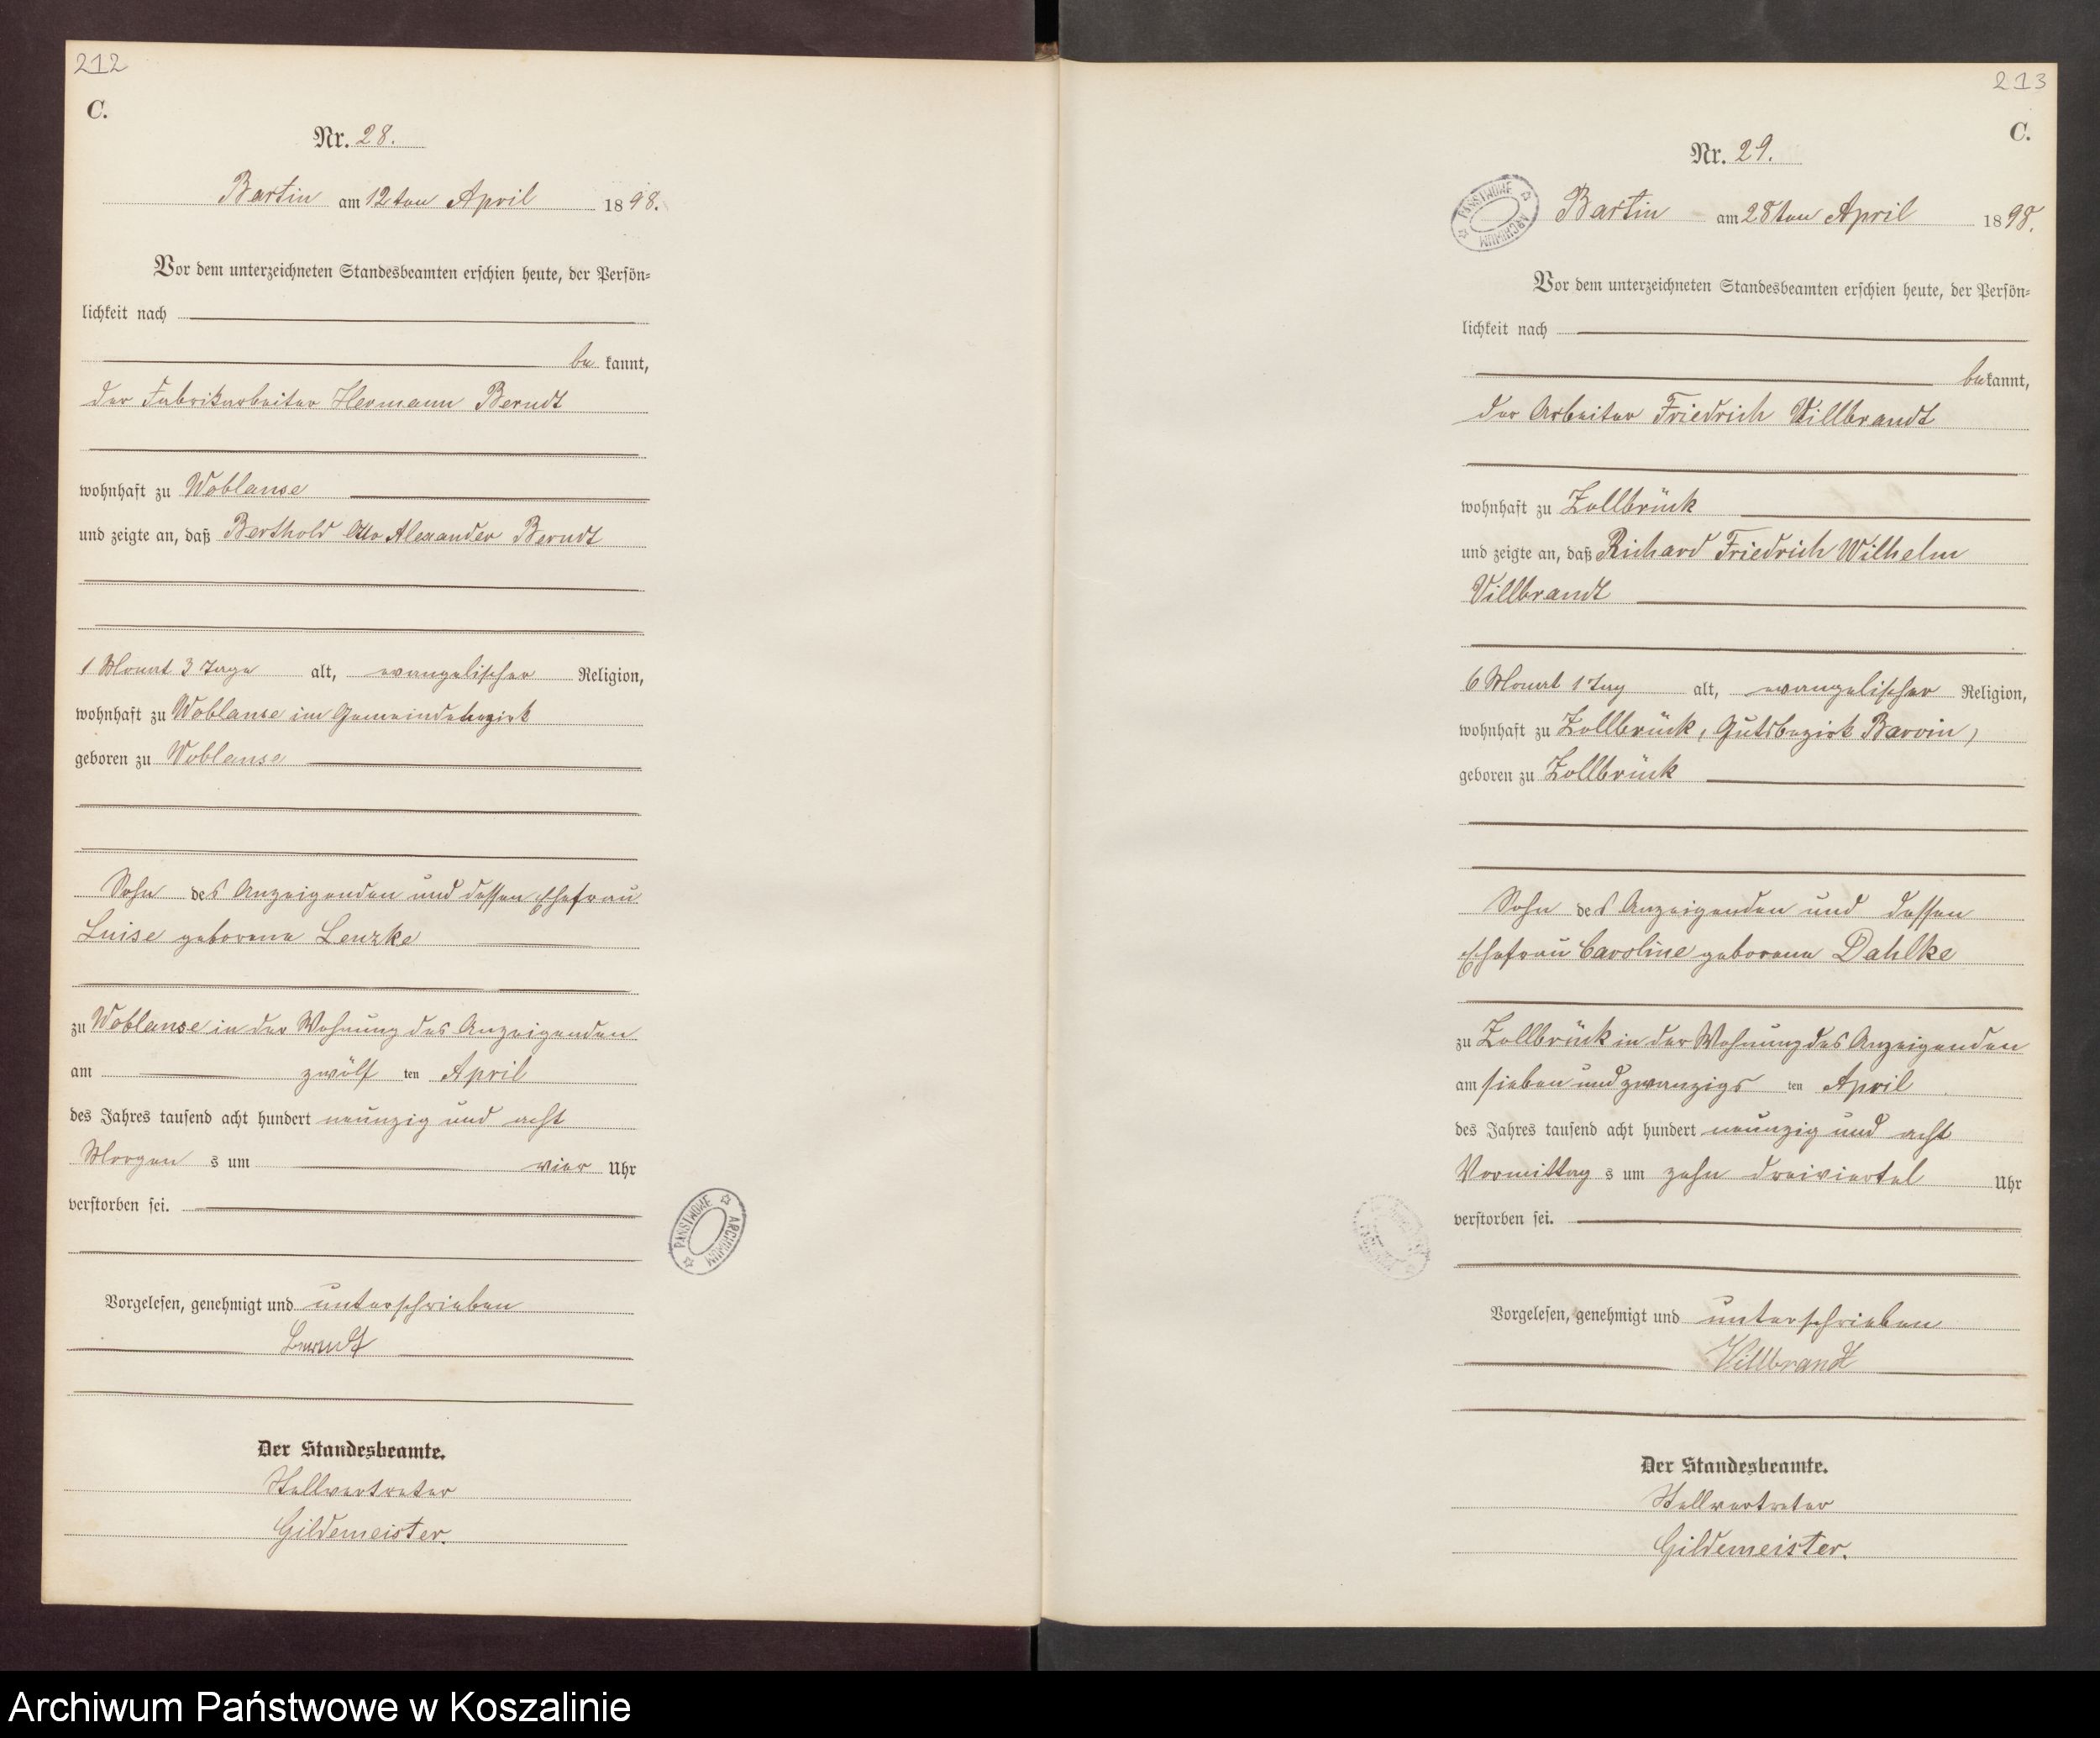 212
C.
Nr. 28.
Bartin am 12ten April 1898.
Vor dem unterzeichneten Standesbeamten erschien heute, der Persön-
lichkeit nach
be kannt,
der Fabrikarbeiter Hermann Berndt
wohnhaft zu Woblanse
und zeigte an, daß Berthold Otto Alexander Berndt
1 Monat 3 Tage alt, evangelischer Religion,
wohnhaft zu Woblanse im Gemeindebezirk
geboren zu Woblanse
Sohn des Anzeigenden und dessen Ehefrau
Luise geborene Lenzke
zu Woblanse in der Wohnung des Anzeigenden
am zwölf ten April
des Jahres tausend acht hundert neunzig und acht
Morgen s um vier Uhr
verstorben sei.
Vorgelesen, genehmigt und unterschrieben
Berndt
Der Standesbeamte.
Stellvertreter
Gildemeister.
PAŃSTWOWE ARCHIWUM
213
C.
Nr. 29.
PAŃSTWOWE ARCHIWUM
Bartin am 28ten April 1898.
Vor dem unterzeichneten Standesbeamten erschien heute, der Persön-
lichkeit nach
bekannt,
der Arbeiter Friedrich Villbrandt
wohnhaft zu Zollbrück
und zeigte an, daß Richard Friedrich Wilhelm
Villbrandt
6 Monat 1 Tag alt, evangelischer Religion,
wohnhaft zu Zollbrück, Gutsbezirk Barvin,
geboren zu Zollbrück
Sohn des Anzeigenden und dessen
Ehefrau Caroline geborene Dahlke
zu Zollbrück in der Wohnung des Anzeigenden
am sieben und zwanzigs ten April
des Jahres tausend acht hundert neunzig und acht
Vormittag s um zehn dreiviertel Uhr
verstorben sei.
Vorgelesen, genehmigt und unterschrieben
Villbrandt
Der Standesbeamte.
Stellvertreter
Gildemeister.
Archiwum Państwowe w Koszalinie